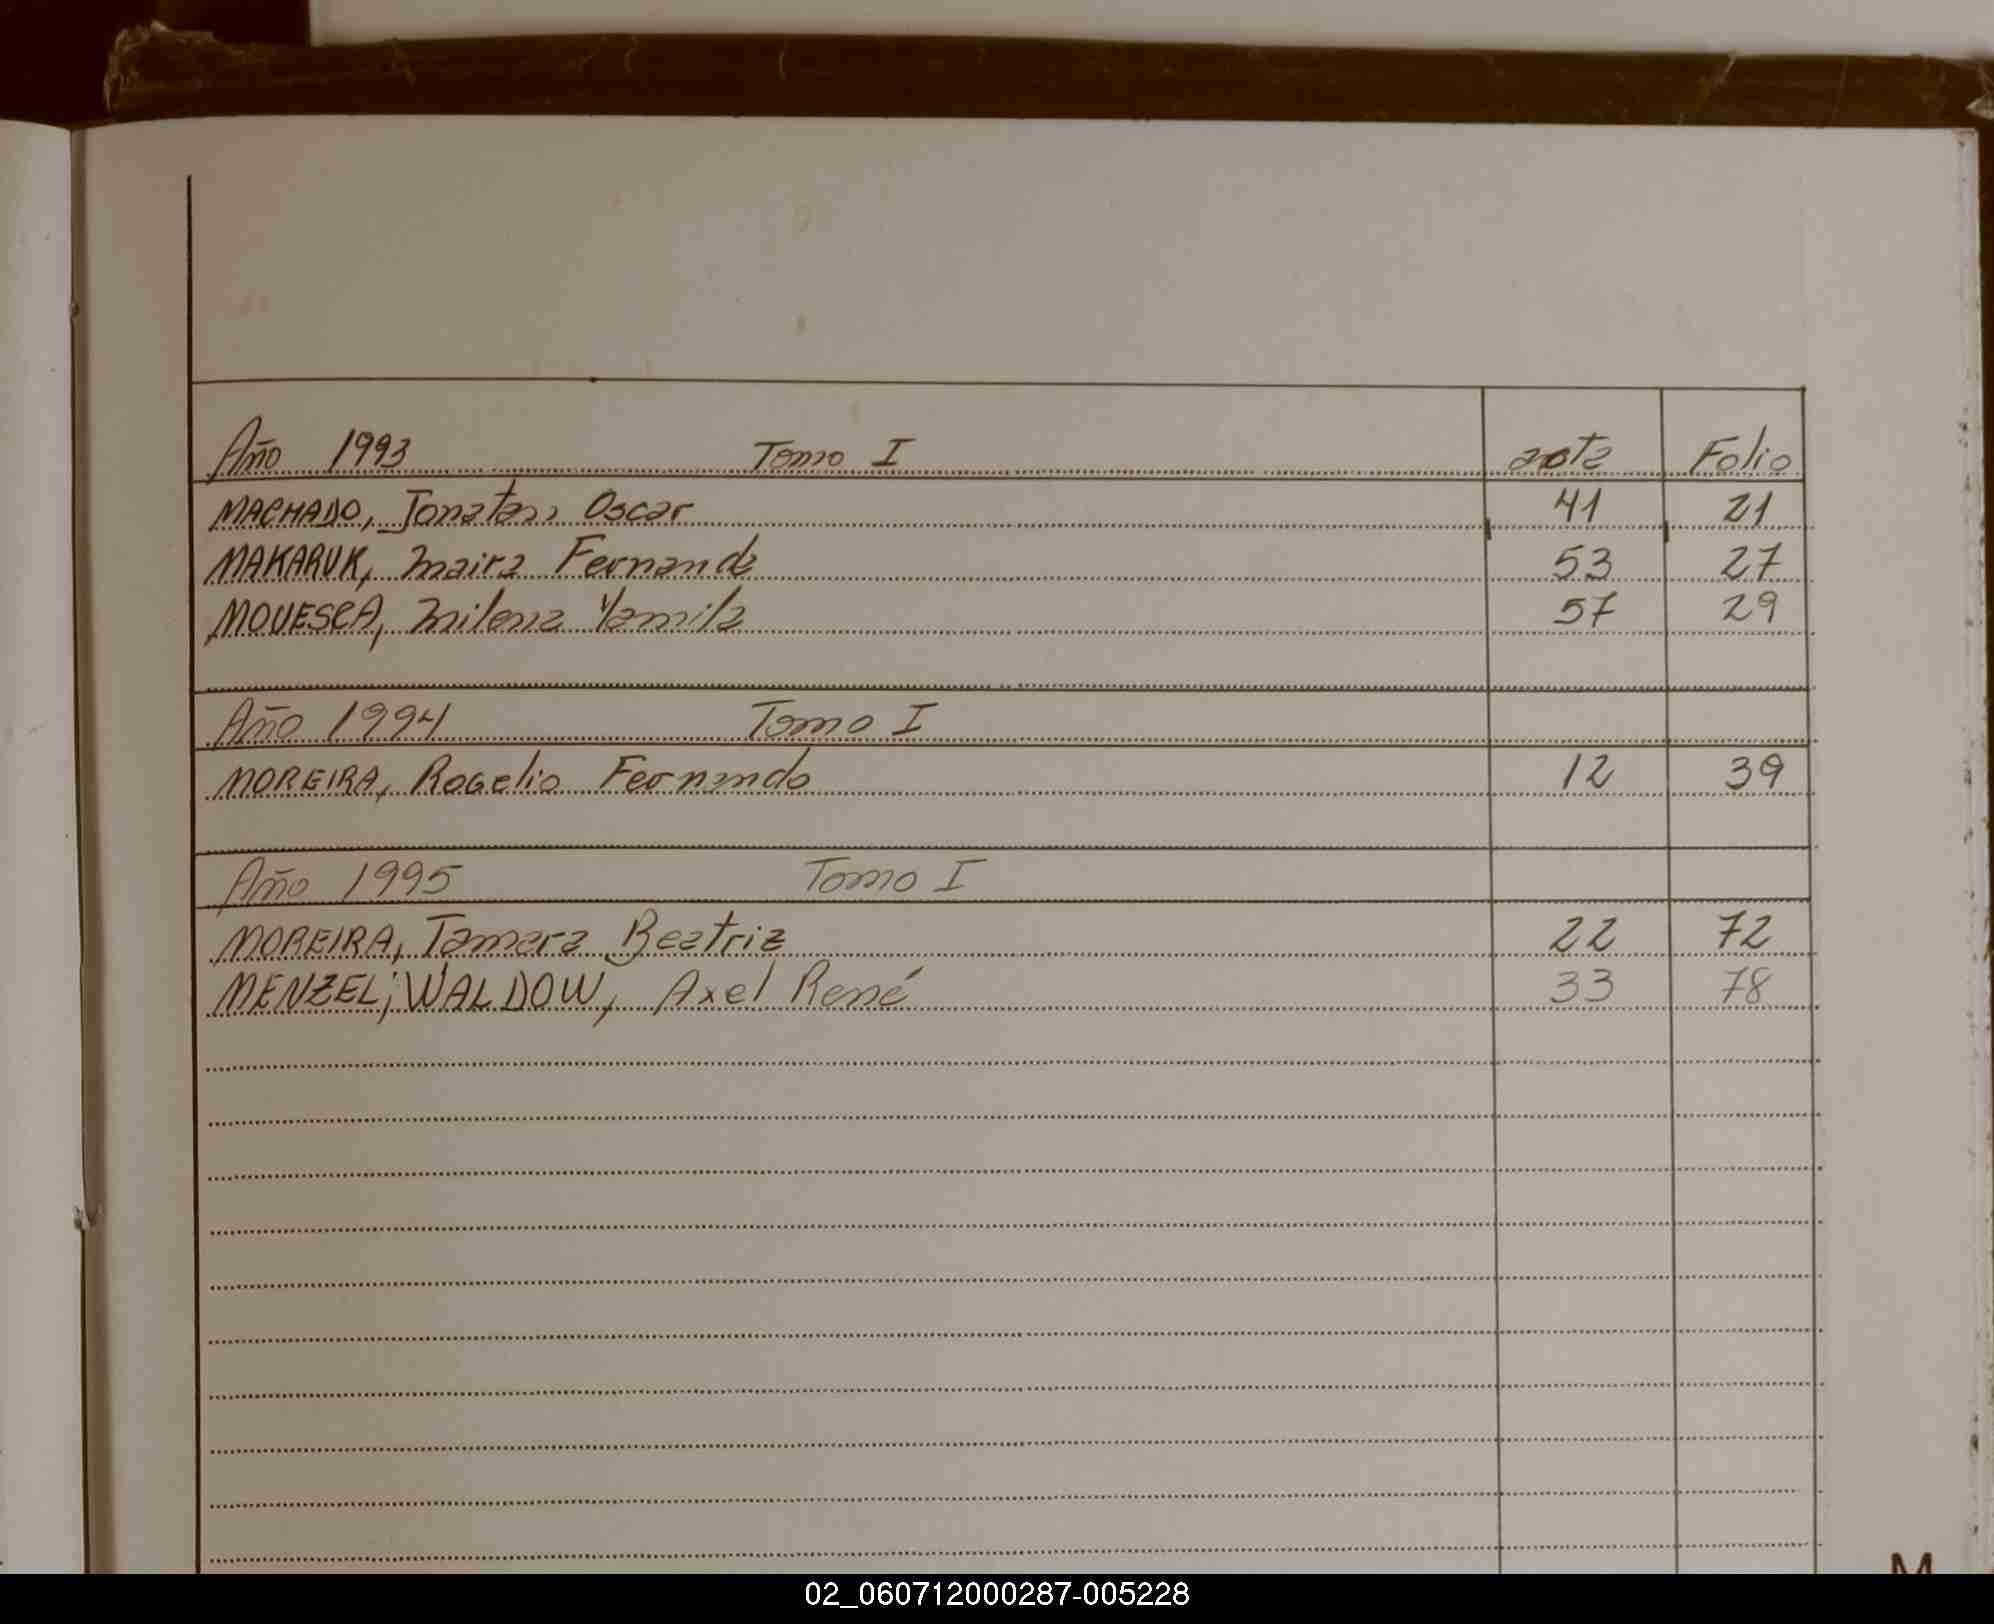 Año 1993 Tomo I acta Folio
MACHADO, Jonatan Oscar 41 21
MAKARUK, Maira Fernanda 53 27
MOVESCA, Milena Yamila 57 29
Año 1994 Tomo I
MOREIRA, Rogelio Fernando 12 39
Año 1995 Tomo I
MOREIRA, Tamara Beatriz 22 72
MENZEL; WALDOW, Axel René 33 78
M
02_060712000287-005228